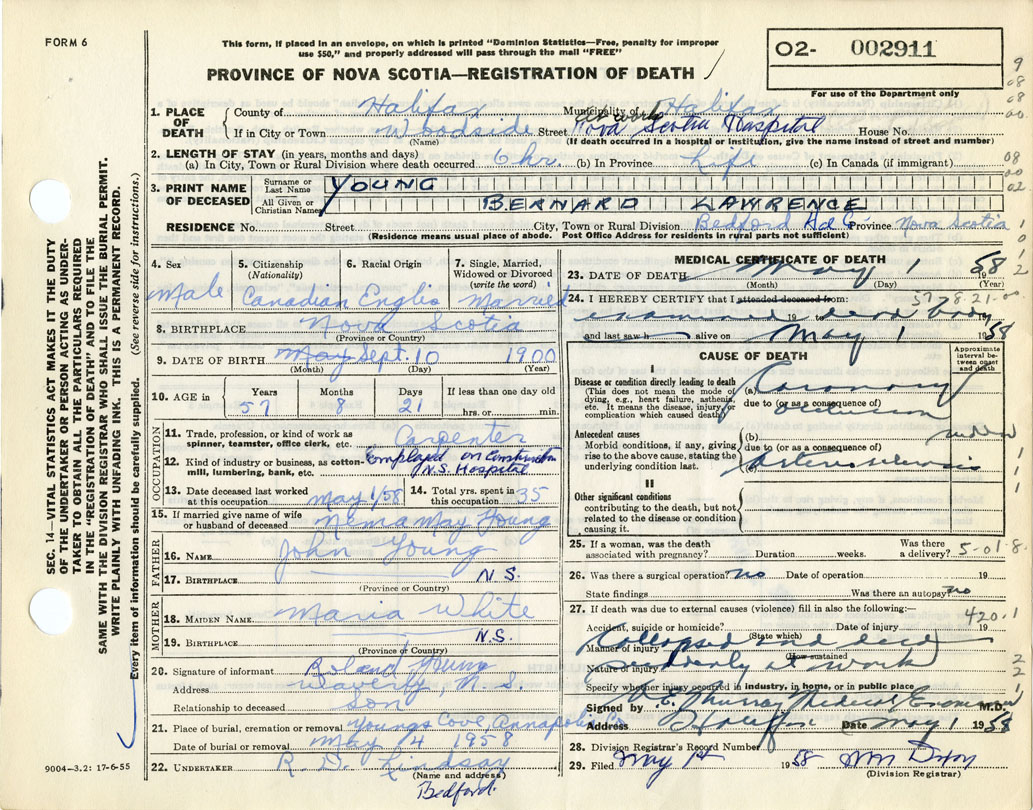 FORM 6
This form, if placed in an envelope, on which is printed "Dominion Statistics—Free, penalty for improper
use $50," and properly addressed will pass through the mail "FREE"
PROVINCE OF NOVA SCOTIA—REGISTRATION OF DEATH
O2- 002911
For use of the Department only
SEC. 14—VITAL STATISTICS ACT MAKES IT THE DUTY
OF THE UNDERTAKER OR PERSON ACTING AS UNDER-
TAKER TO OBTAIN ALL THE PARTICULARS REQUIRED
IN THE "REGISTRATION OF DEATH" AND TO FILE THE
SAME WITH THE DIVISION REGISTRAR WHO SHALL ISSUE THE BURIAL PERMIT.
WRITE PLAINLY WITH UNFADING INK. THIS IS A PERMANENT RECORD.
Every item of information should be carefully supplied. (See reverse side for instructions.)
1. PLACE OF DEATH
County of Halifax Municipality of Halifax
If in City or Town Woodside Street at work Nova Scotia Hospital House No.
(Name) (If death occurred in a hospital or institution, give the name instead of street and number)
2. LENGTH OF STAY (in years, months and days)
(a) In City, Town or Rural Division where death occurred 6 hrs. (b) In Province Life (c) In Canada (if immigrant)
3. PRINT NAME OF DECEASED
Surname or Last Name YOUNG
All Given or Christian Names BERNARD LAWRENCE
RESIDENCE No. Street City, Town or Rural Division Bedford Province Nova Scotia
(Residence means usual place of abode. Post Office Address for residents in rural parts not sufficient)
4. Sex
Male
5. Citizenship (Nationality)
Canadian
6. Racial Origin
English
7. Single, Married, Widowed or Divorced (write the word)
Married
8. BIRTHPLACE Nova Scotia
(Province or Country)
9. DATE OF BIRTH May Sept. 10 1900
(Month) (Day) (Year)
10. AGE in Years 57 Months 8 Days 21 If less than one day old hrs. or min.
OCCUPATION
11. Trade, profession, or kind of work as spinner, teamster, office clerk, etc. Carpenter
12. Kind of industry or business, as cotton-mill, lumbering, bank, etc. Employed on Construction N.S. Hospital
13. Date deceased last worked at this occupation May 1/58
14. Total yrs. spent in this occupation 35
15. If married give name of wife or husband of deceased Nema May Young
FATHER
16. NAME John Young
17. BIRTHPLACE N.S.
(Province or Country)
MOTHER
18. MAIDEN NAME Maria White
19. BIRTHPLACE N.S.
(Province or Country)
20. Signature of informant Roland Young
Address Waverly, N.S.
Relationship to deceased son
21. Place of burial, cremation or removal Youngs Cove Annapolis Co
Date of burial or removal May 4 1958
22. UNDERTAKER R. D. Lindsay
(Name and address)
Bedford.
MEDICAL CERTIFICATE OF DEATH
23. DATE OF DEATH May 1 1958
(Month) (Day) (Year)
24. I HEREBY CERTIFY that I attended deceased from:
57 8-21-00
examined 19 to dead body
and last saw h alive on May 1 1958
CAUSE OF DEATH
Approximate interval between onset and death
I
Disease or condition directly leading to death
(This does not mean the mode of dying, e.g., heart failure, asthenia, etc. It means the disease, injury, or complication which caused death.)
(a) Coronary
due to (or as a consequence of)
occlusion
Antecedent causes
Morbid conditions, if any, giving rise to the above cause, stating the underlying condition last.
(b) sudden
due to (or as a consequence of)
(c) Arteriosclerosis
II
Other significant conditions
contributing to the death, but not related to the disease or condition causing it.
25. If a woman, was the death associated with pregnancy? Duration weeks. Was there a delivery? 5-01-8
26. Was there a surgical operation? no Date of operation 19
State findings Was there an autopsy no
27. If death was due to external causes (violence) fill in also the following:—
420.1
Accident, suicide or homicide? Date of injury 19
(State which)
Manner of injury Collapsed and died
(How sustained)
Nature of injury suddenly at work
Specify whether injury occurred in industry, in home, or in public place
Signed by Murray Medical Examiner M.D.
Address Halifax Date May 1 1958
28. Division Registrar's Record Number
29. Filed May 1st 1958
(Division Registrar)
9004—3.2: 17-6-55